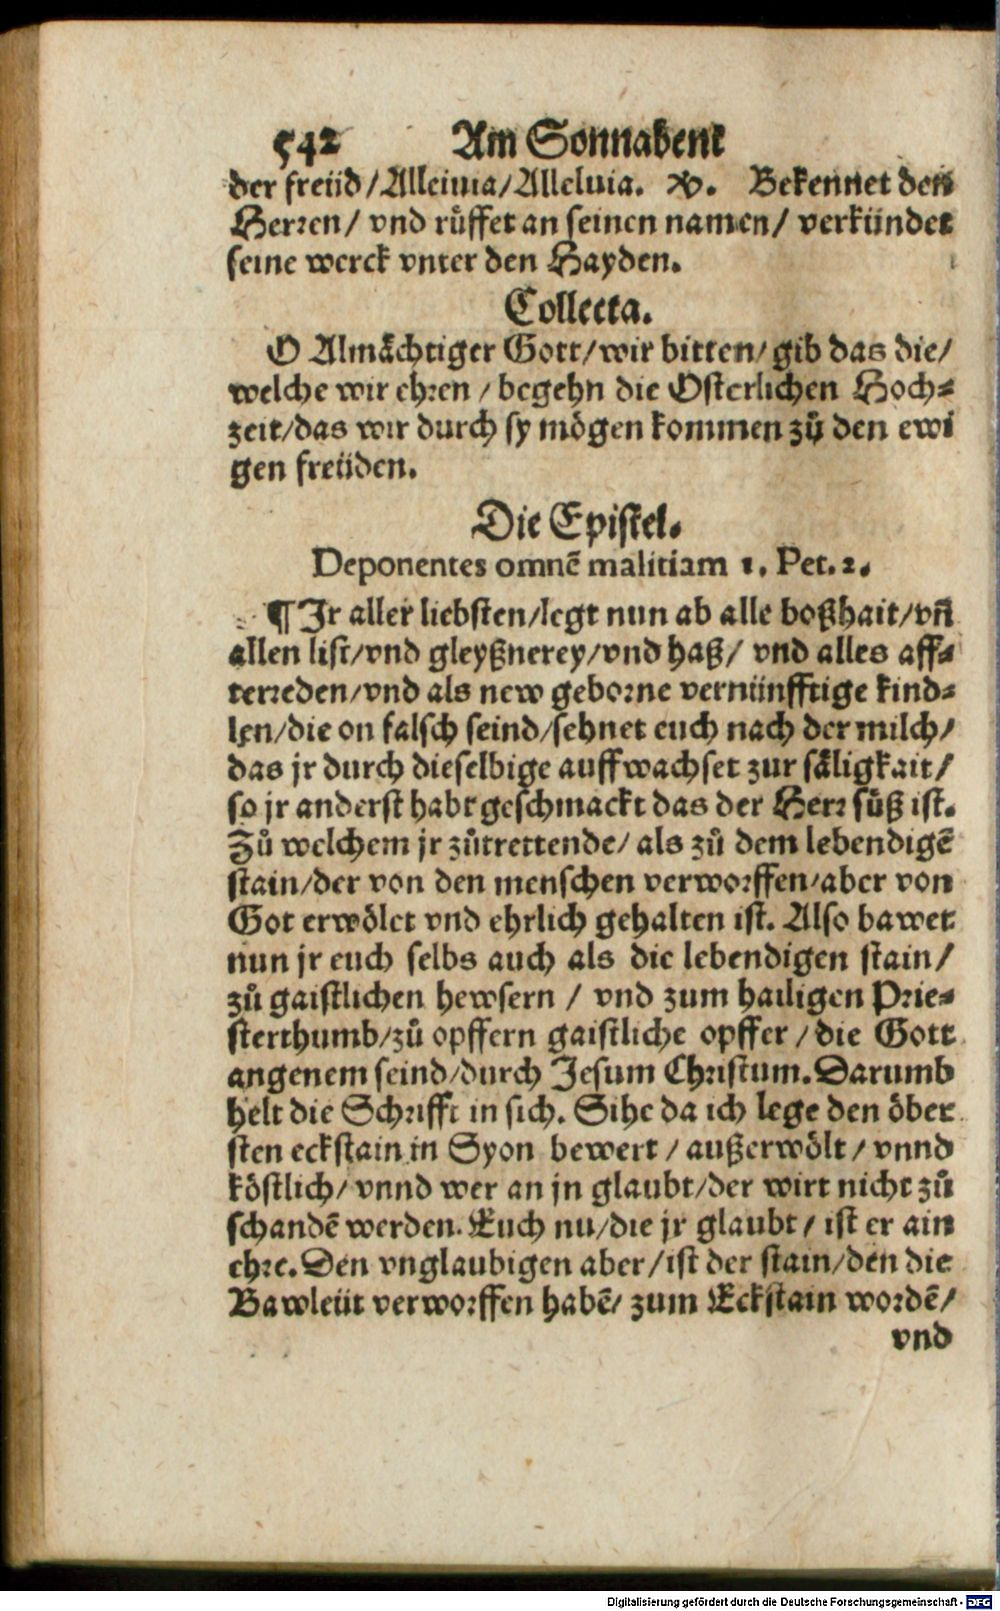 542 Am Sonnabent
der freüd/Alleluia/Alleluia. ℣. Bekennet den
Herren/ vnd růffet an seinen namen/ verkündet
seine werck vnter den Hayden.
Collecta.
O Almåchtiger Gott/wir bitten/gib das die/
welche wir ehren/begehn die Osterlichen Hoch-
zeit/das wir durch sy mögen kommen zů den ewi
gen freüden.
Die Epistel.
Deponentes omnē malitiam 1. Pet. 2.
¶ Ir aller liebsten/legt nun ab alle boßhait/vñ
allen list/vnd gleyßnerey/vnd haß/ vnd alles aff-
terreden/vnd als new geborne vernünfftige kind-
len/die on falsch seind/sehnet euch nach der milch/
das jr durch dieselbige auffwachset zur såligkait/
so jr anderst habt geschmackt das der Herr sůß ist.
Zů welchem jr zůtrettende/ als zů dem lebendigē
stain/der von den menschen verworffen/aber von
Got erwölet vnd ehrlich gehalten ist. Also bawet
nun jr euch selbs auch als die lebendigen stain/
zů gaistlichen hewsern / vnd zum hailigen Prie-
sterthumb/zů opffern gaistliche opffer/die Gott
angenem seind/durch Jesum Christum. Darumb
helt die Schrifft in sich. Sihe da ich lege den öber
sten eckstain in Syon bewert/außerwölt/vnnd
köstlich/vnnd wer an jn glaubt/der wirt nicht zů
schandē werden. Euch nu/die jr glaubt/ ist er ain
ehre. Den vnglaubigen aber/ist der stain/den die
Bawleüt verworffen habē/ zum Eckstain wordē/
vnd
Digitalisierung gefördert durch die Deutsche Forschungsgemeinschaft - DFG